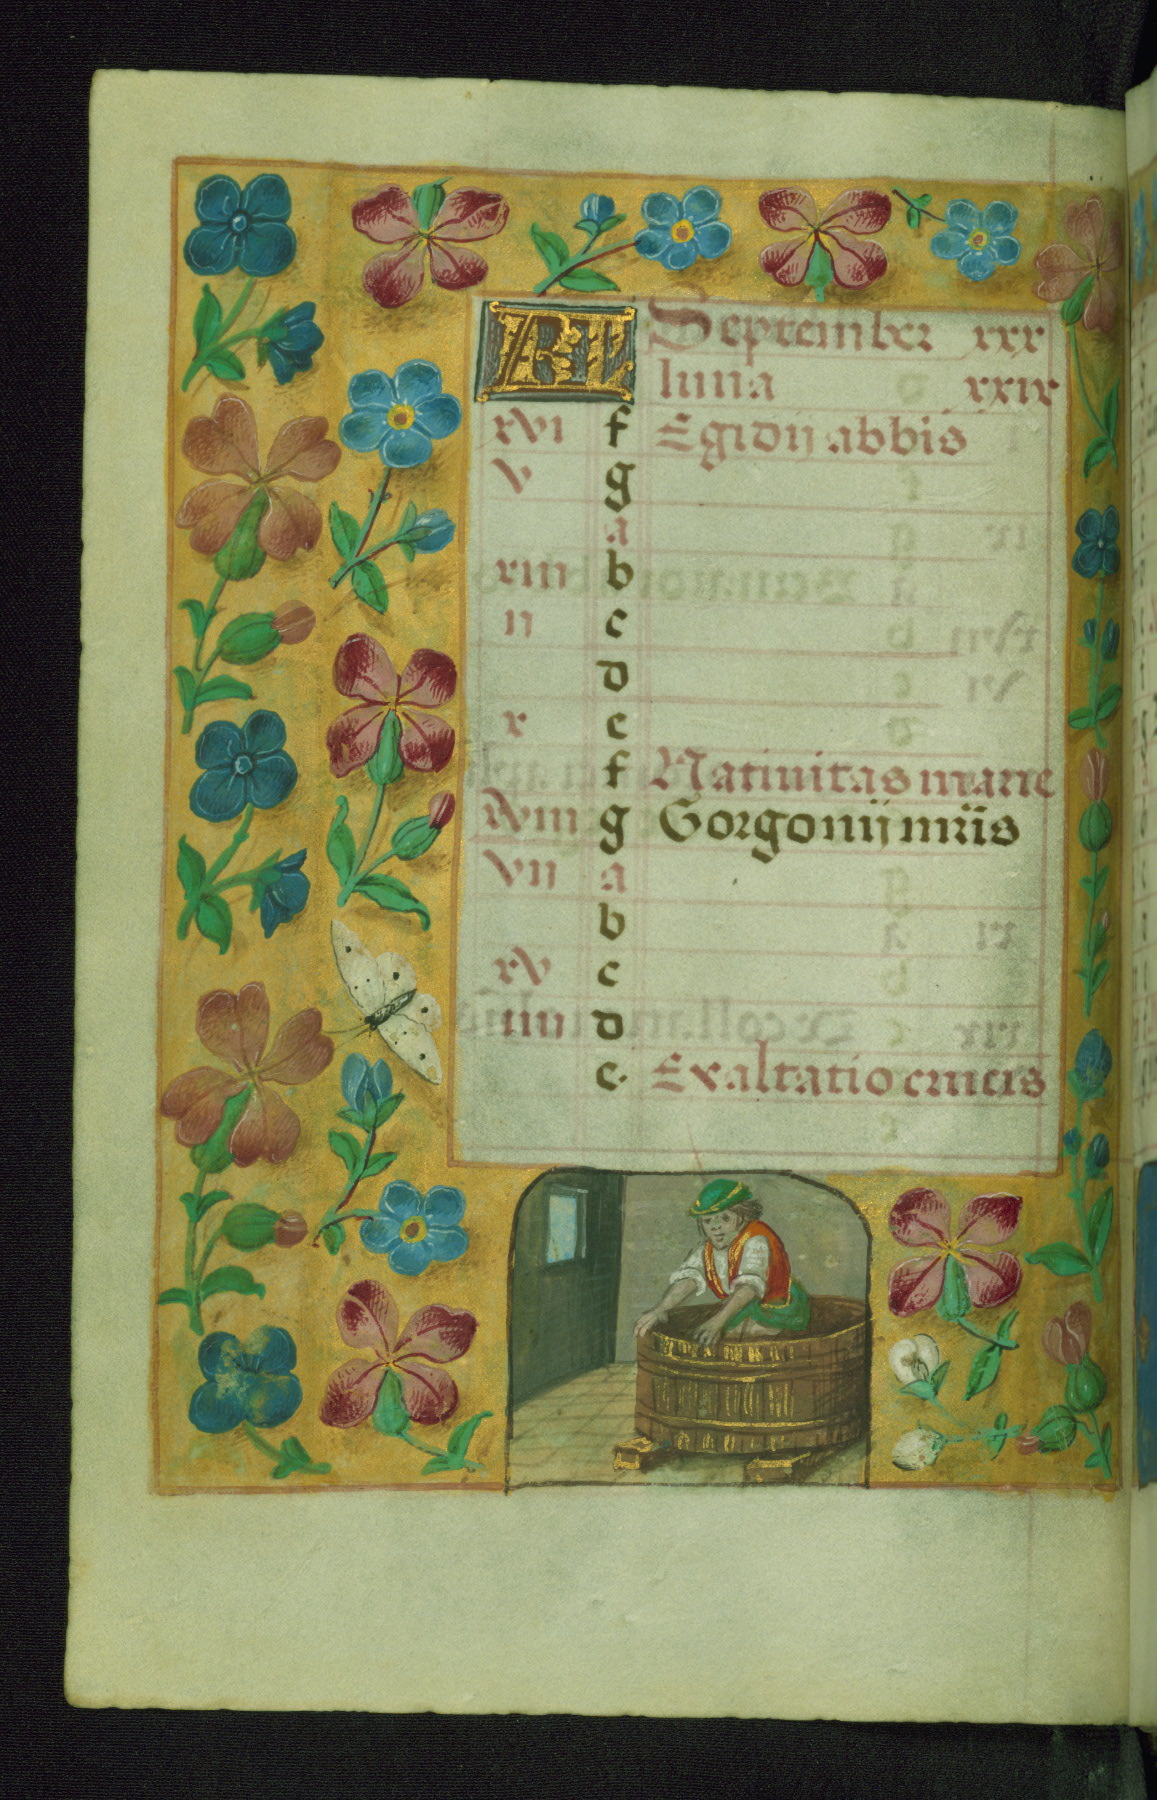 KL September xxx
luna xxix
xvi f Egidij abbis
v g
a
xiii b
ii c
d
x e
f Natiuitas marie
xviii g Gorgonij mr̄is
vii a
b
xv c
iiii d
e. Exaltatio crucis